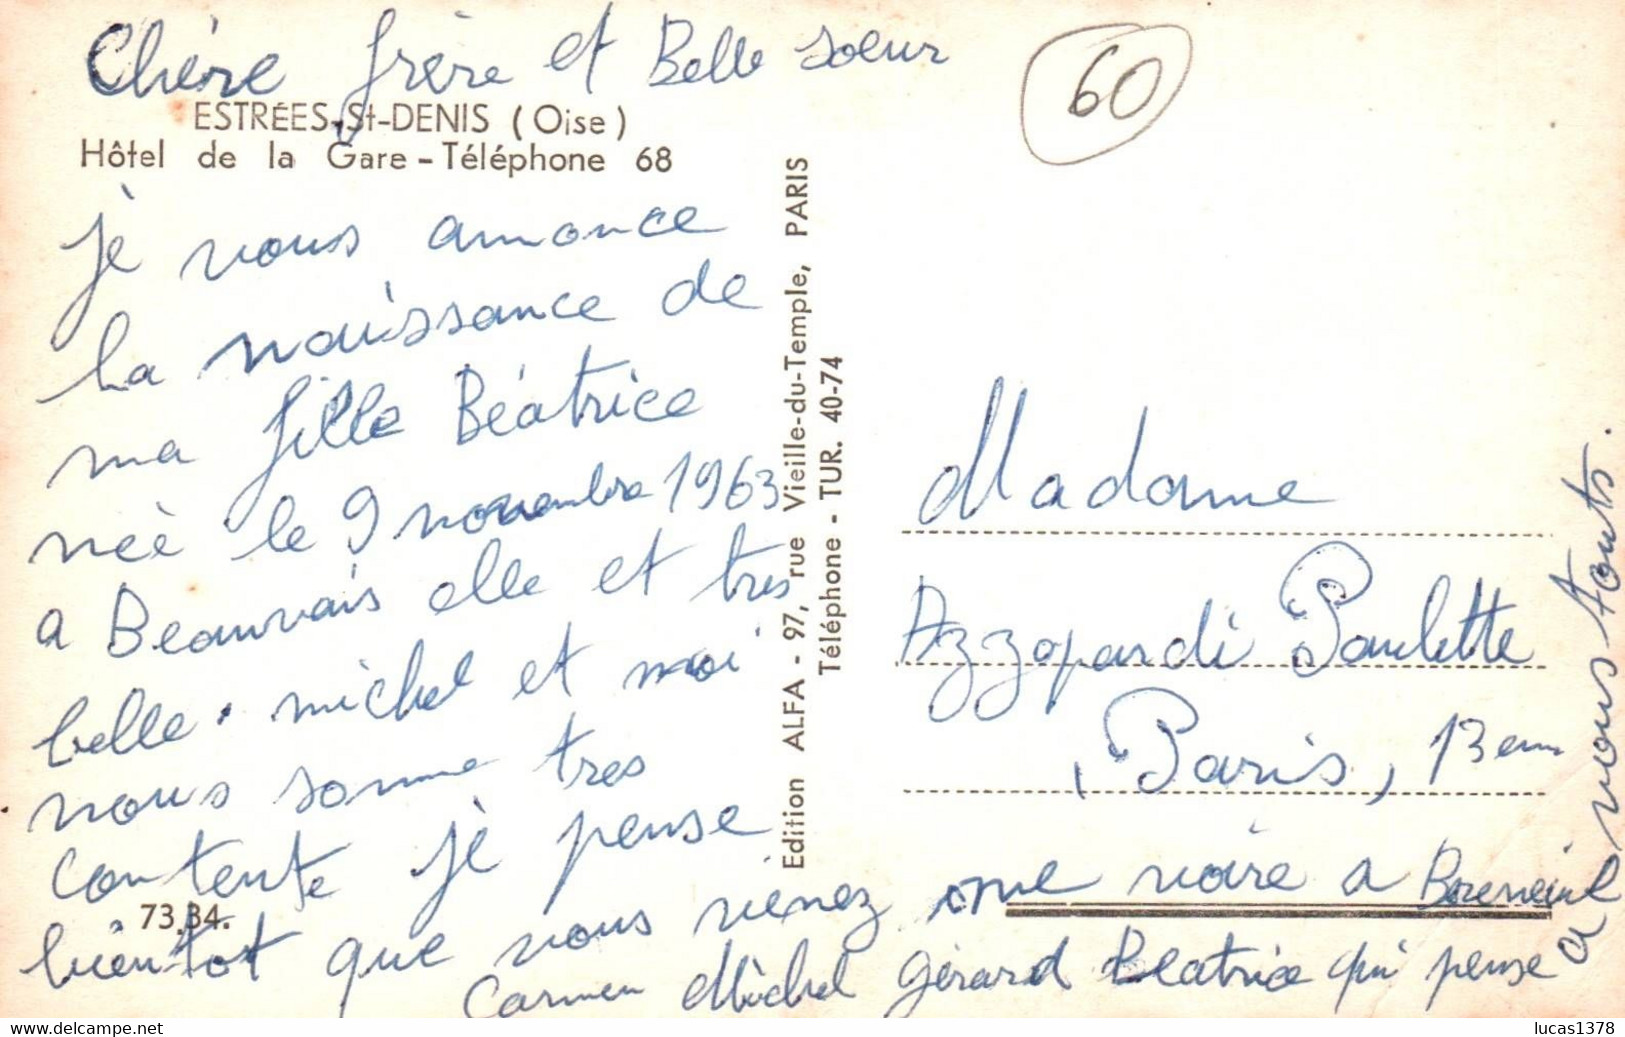 Chère frère et Belle soeur
60
ESTRÉES-St-DENIS (Oise)
Hôtel de la Gare - Téléphone 68
je vous annonce
la naissance de
ma fille Béatrice
née le 9 novembre 1963
a Beauvais elle et tres
belle. michel et moi
nous somme tres
contente je pense
bientot que vous venez me voire a
Carmen Michel Gérard Beatrice qui pense
a vous touts.
73.34.
Edition ALFA - 97, rue Vieille-du-Temple, PARIS
Téléphone - TUR. 40-74
Madame
Azzopardi Paulette
, Paris, 13em
delcampe.net
lucas1378